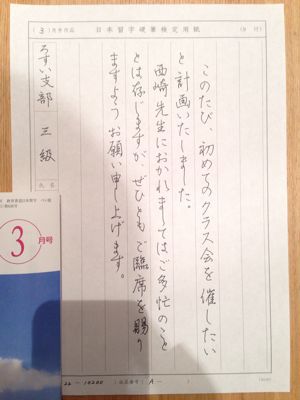 日本習字硬筆検定用紙
(3)月号作品
このたび、初めてのクラス会を催したい
と計画いたしました。
西崎先生におかれましてはご多忙のこと
とは存じますが、ぜひともご臨席を賜り
ますようお願い申し上げます。
三級
氏名
3
月号